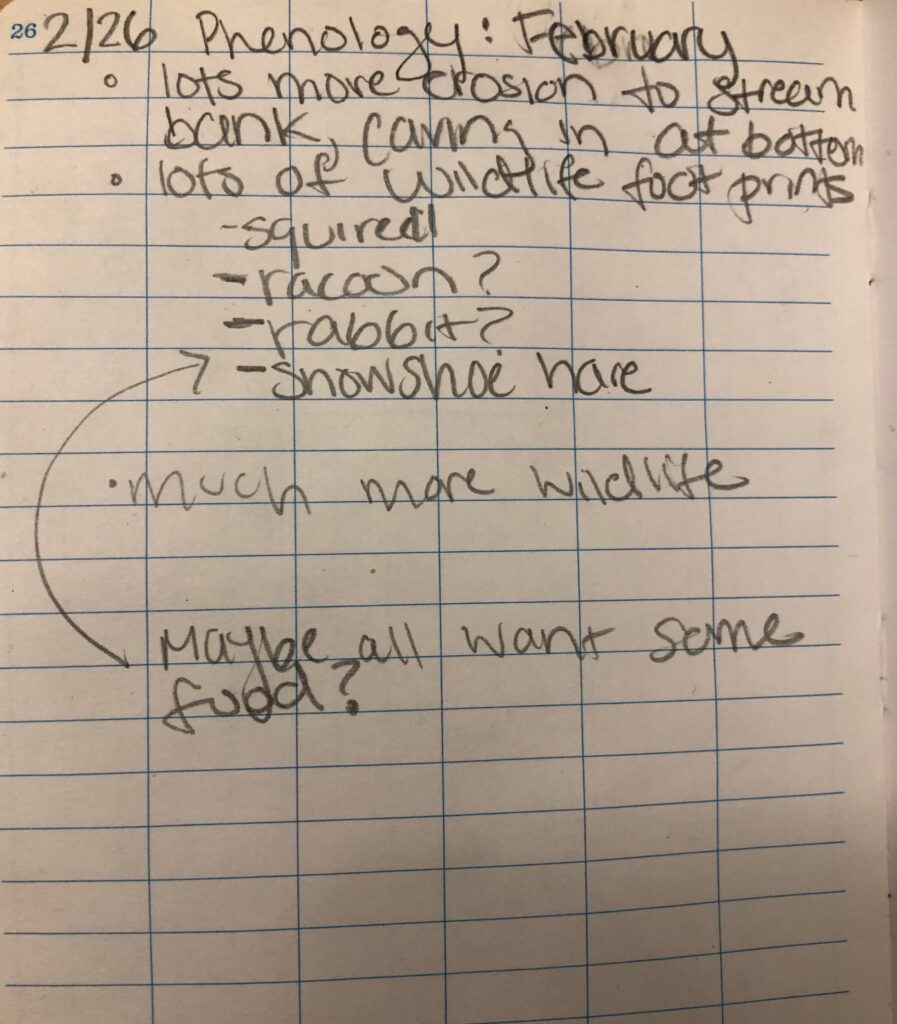 26 2/26 Phenology: February
• lots more erosion to stream
bank, caving in at bottom
• lots of wildlife foot prints
-squirell
-racoon?
-rabbit?
-snowshoe hare
• much more wildlife
Maybe all want some
food?